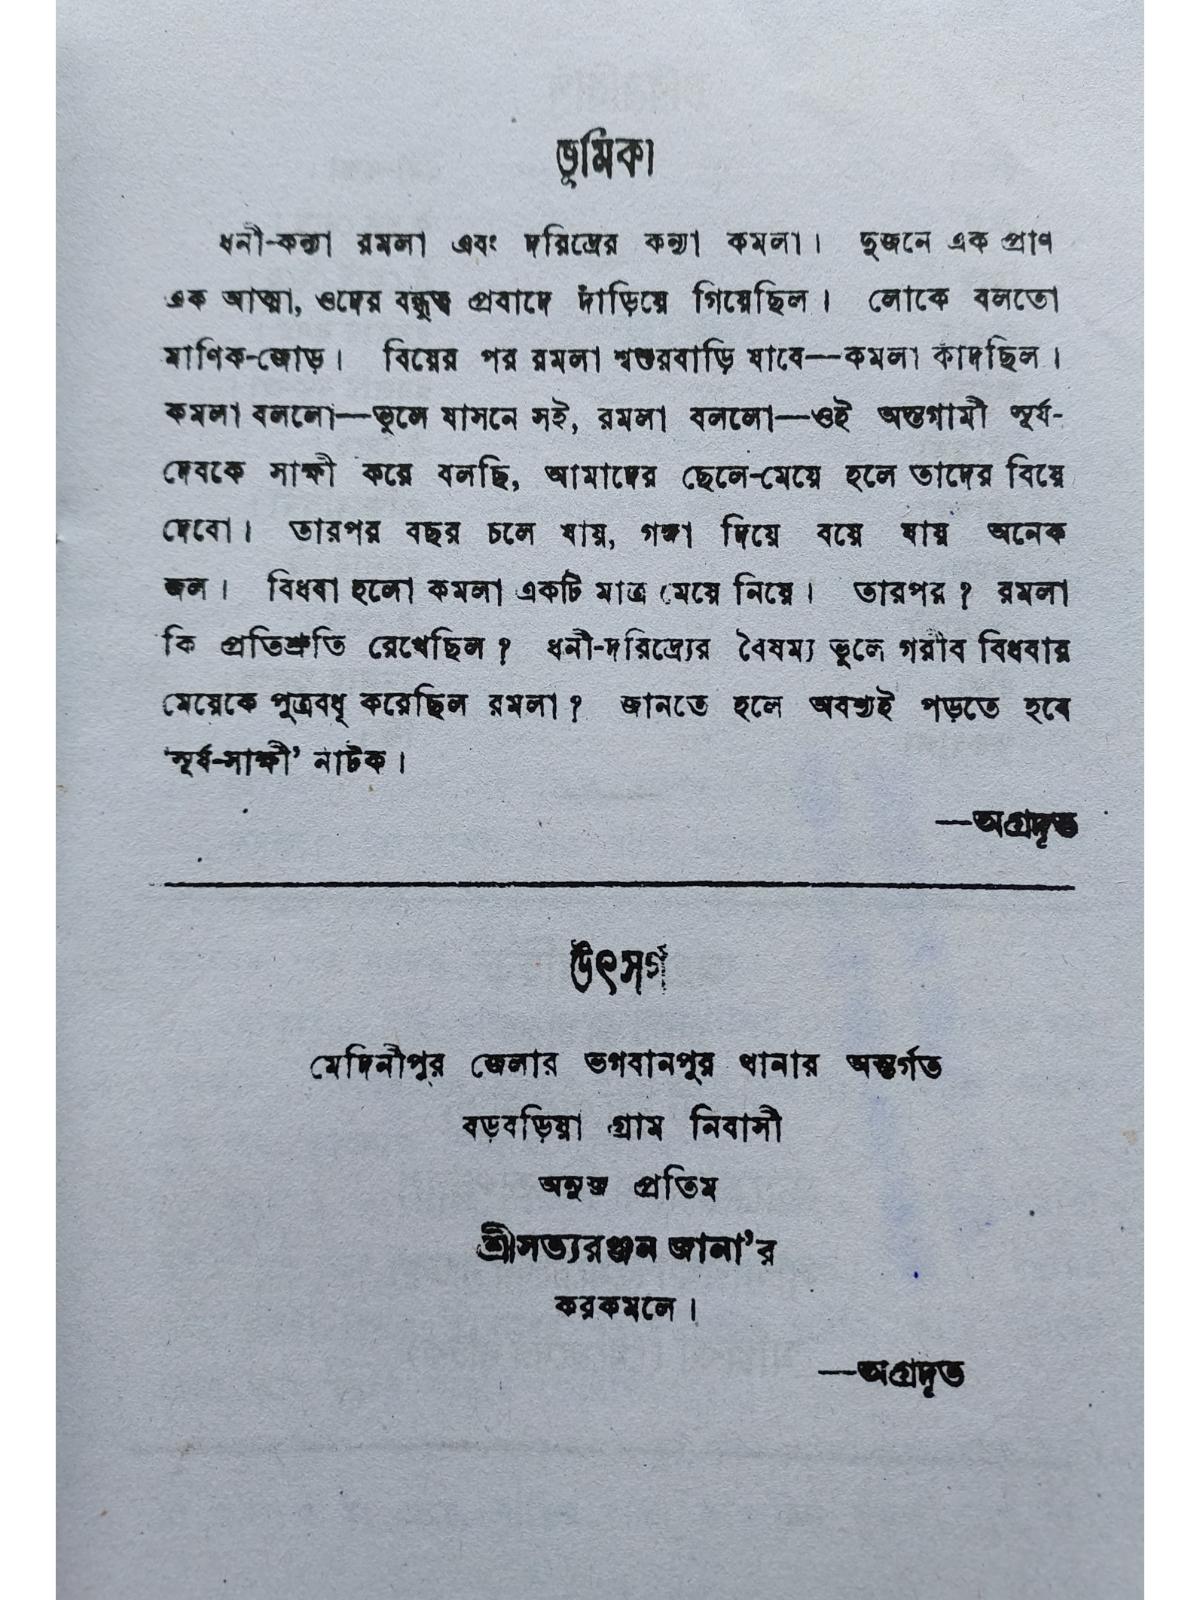 ভূমিকা
ধনী-কন্যা রমলা এবং দরিদ্রের কন্যা কমলা। দুজনে এক প্রাণ
এক আত্মা, ওদের বন্ধুত্ব প্রবাদে দাঁড়িয়ে গিয়েছিল। লোকে বলতো
মাণিক-জোড়। বিয়ের পর রমলা শ্বশুরবাড়ি যাবে—কমলা কাঁদছিল।
কমলা বললো—ভুলে যাসনে সই, রমলা বললো—ওই অস্তগামী সূর্য-
দেবকে সাক্ষী করে বলছি, আমাদের ছেলে-মেয়ে হলে তাদের বিয়ে
দেবো। তারপর বছর চলে যায়, গঙ্গা দিয়ে বয়ে যায় অনেক
জল। বিধবা হলো কমলা একটি মাত্র মেয়ে নিয়ে। তারপর? রমলা
কি প্রতিশ্রুতি রেখেছিল? ধনী-দরিদ্র্যের বৈষম্য ভুলে গরীব বিধবার
মেয়েকে পুত্রবধূ করেছিল রমলা? জানতে হলে অবশ্যই পড়তে হবে
‘সূর্য-সাক্ষী’ নাটক।
—অগ্রদূত
উৎসর্গ
মেদিনীপুর জেলার ভগবানপুর থানার অন্তর্গত
বড়বড়িয়া গ্রাম নিবাসী
অনুজ প্রতিম
শ্রীসত্যরঞ্জন জানা’র
করকমলে।
—অগ্রদূত